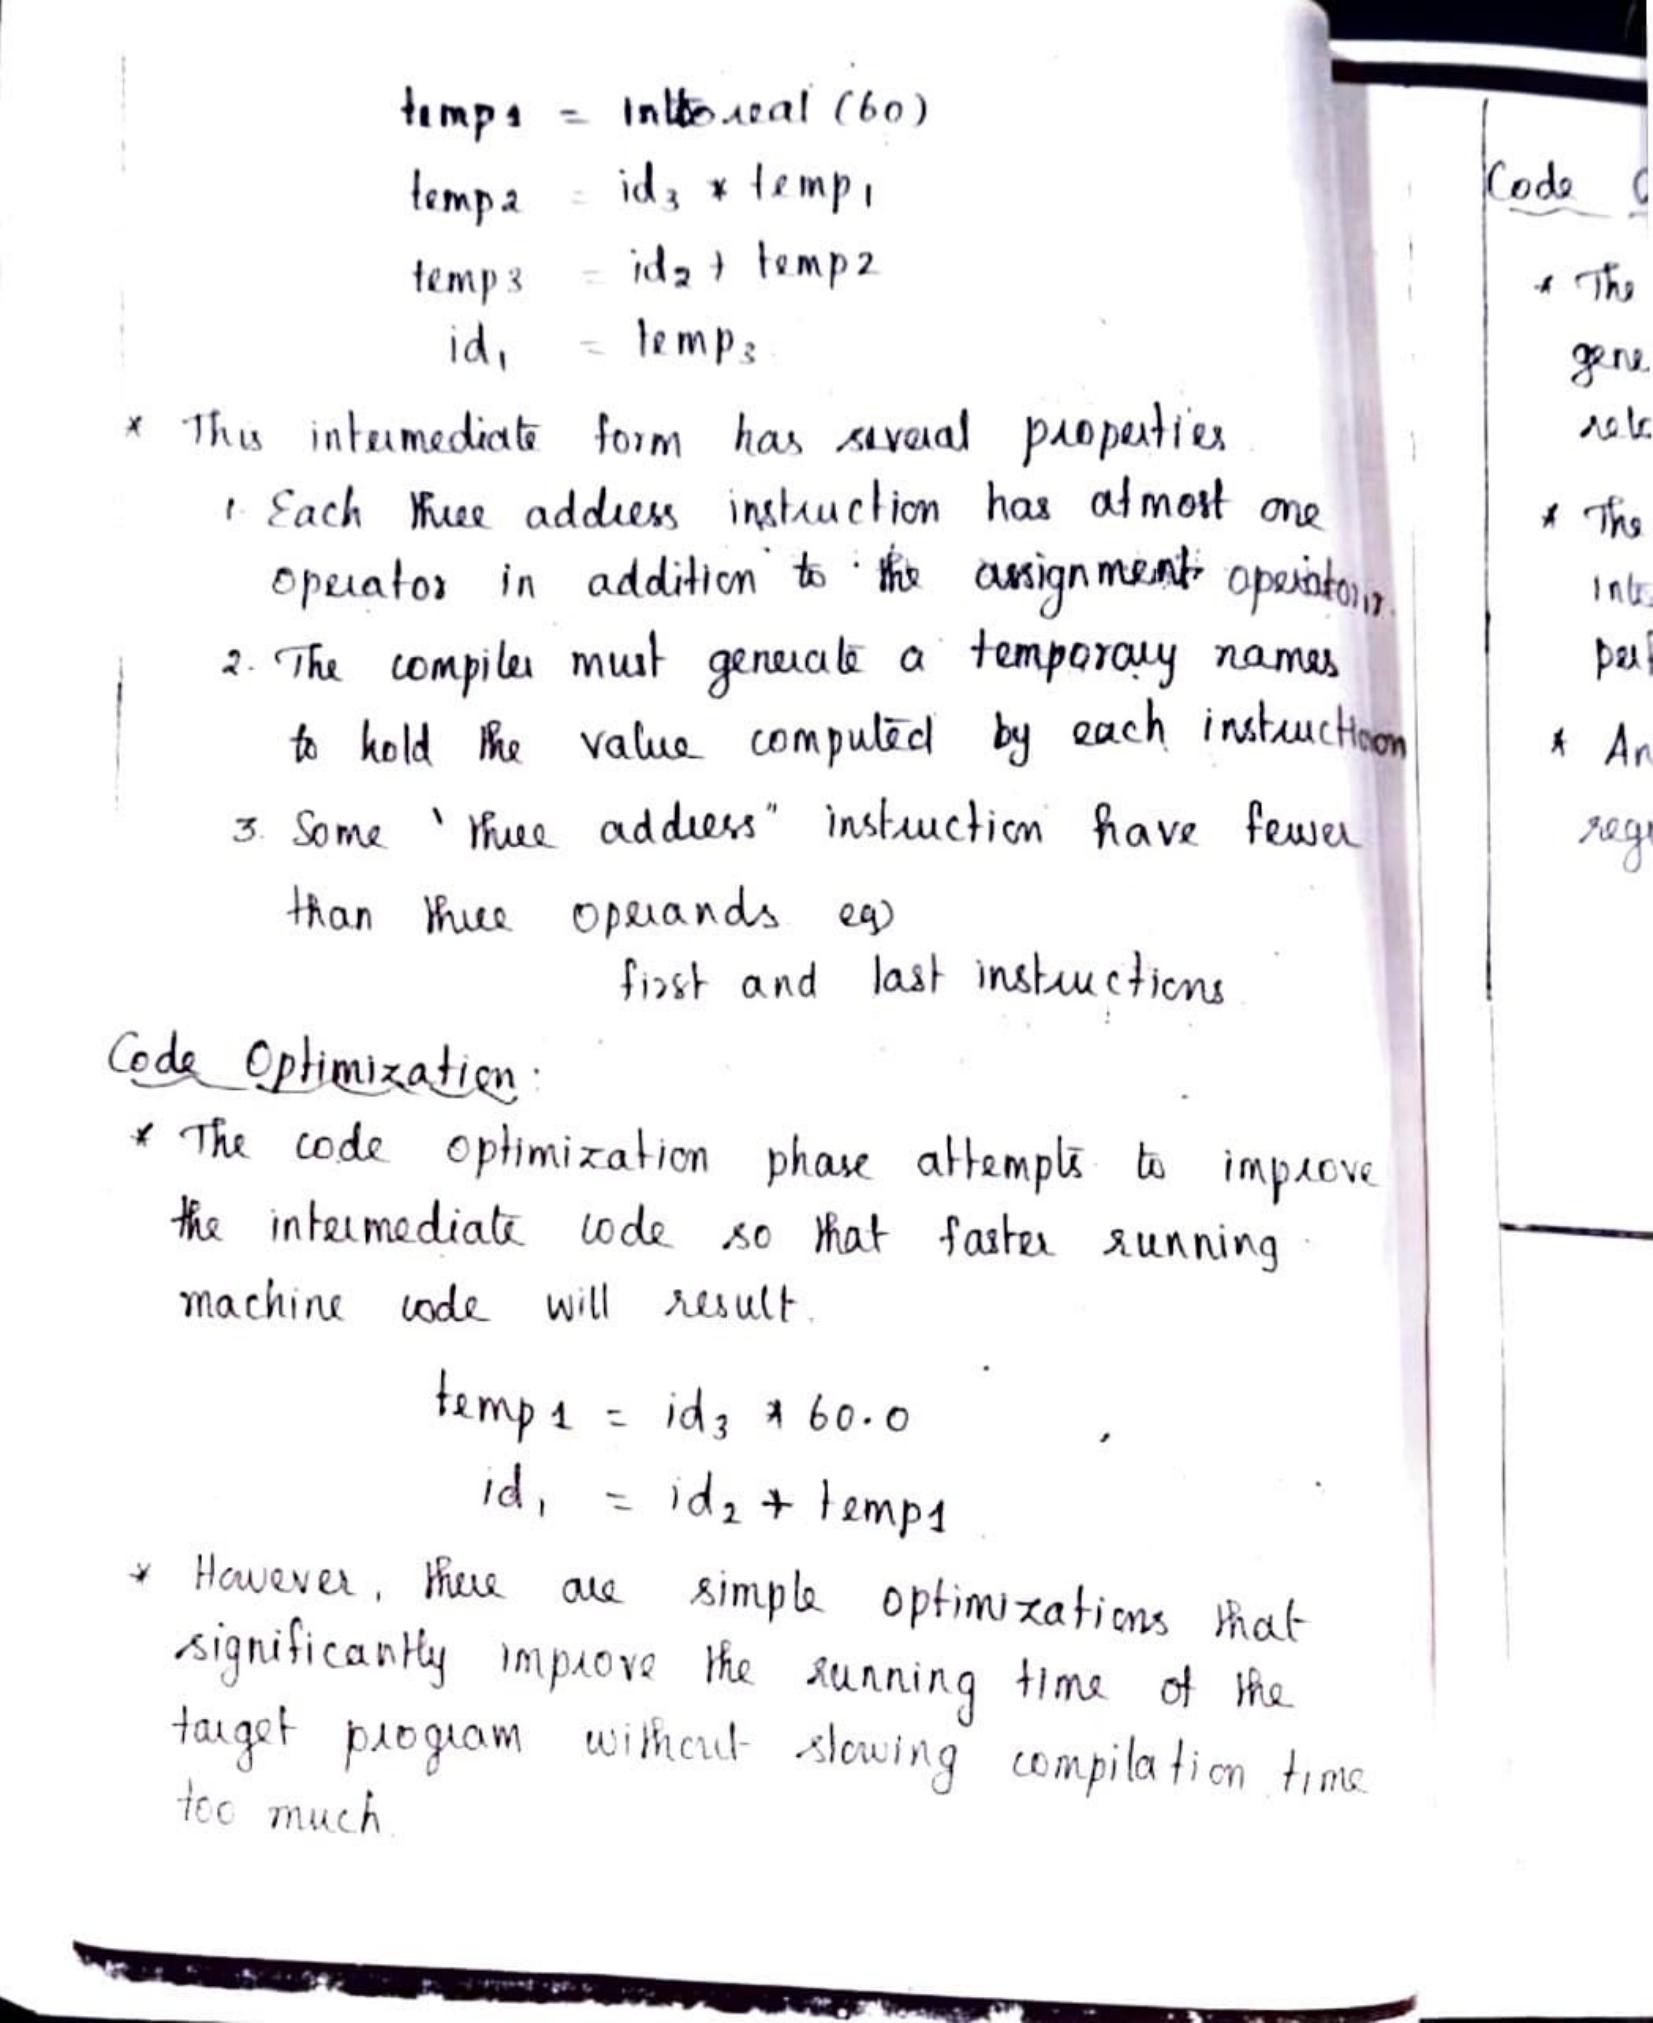 temp1 = inttoreal (60)
temp2 = id3 * temp1
temp3 = id2 + temp2
id1 = temp3
* This intermediate form has several properties
1. Each three address instruction has atmost one
operator in addition to the assignment operator
2. The compiler must generate a temporary names
to hold the value computed by each instruction
3. Some ' three address" instruction have fewer
than three operands eg)
first and last instructions
Code Optimization:
* The code optimization phase attempts to improve
the intermediate code so that faster running
machine code will result.
temp1 = id3 * 60.0
id1 = id2 + temp1
* However, there are simple optimizations that
significantly improve the running time of the
target program without slowing compilation time
too much.
Code
* The
gene
* The
* An